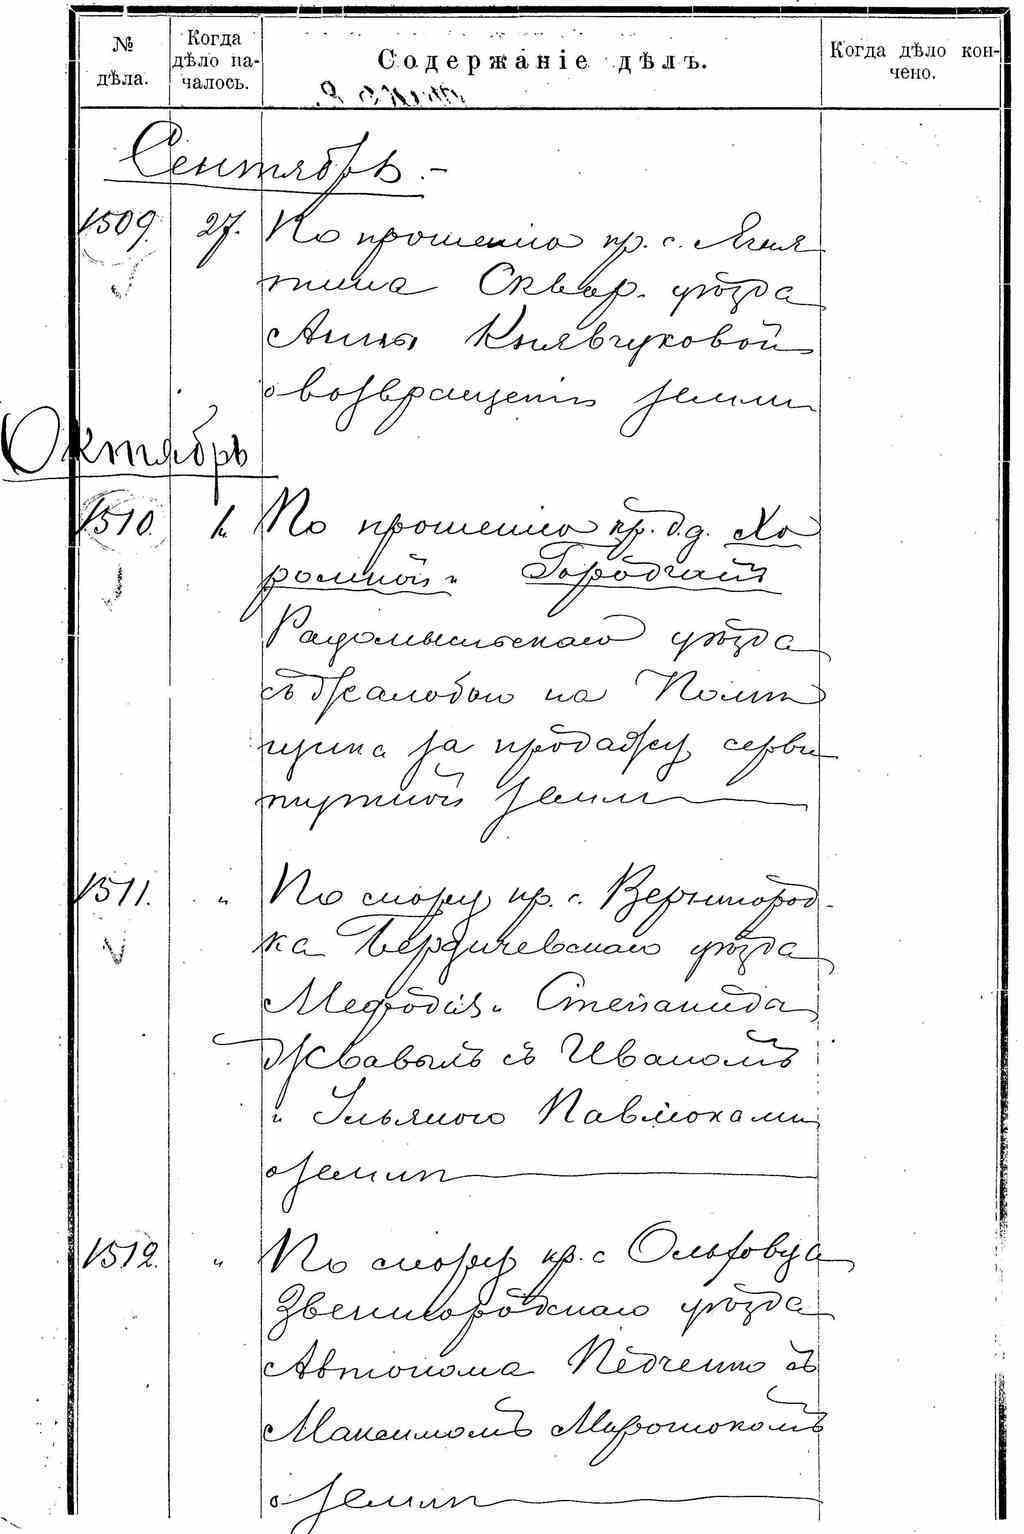 № дѣла.
Когда дѣло на-
чалось.
Содержаніе дѣлъ.
Когда дѣло кон-
чено.
Сентябрь.-
1509. 27. По прошенію кр. с. Ягня
тина Сквир. уѣзда
Анны Княвчуковой
о возвращеніи земли
Октябрь
1510. 1. По прошенію кр. д.д. Хо
ромной и Городчаны
Радомысльскаго уѣзда
съ жалобою на Помѣ
щика за продажу серви
тутной земли
1511. " По спору кр. с. Вернигород-
ка Бердичевскаго уѣзда
Мефодія и Степанида
съ Иваномъ
и Ульяною Павлюками
о земли
1512. " По спору кр. с Ольховца
Звенигородскаго уѣзда
Автонома Педченко съ
Максимомъ Мирошокомъ
о земли